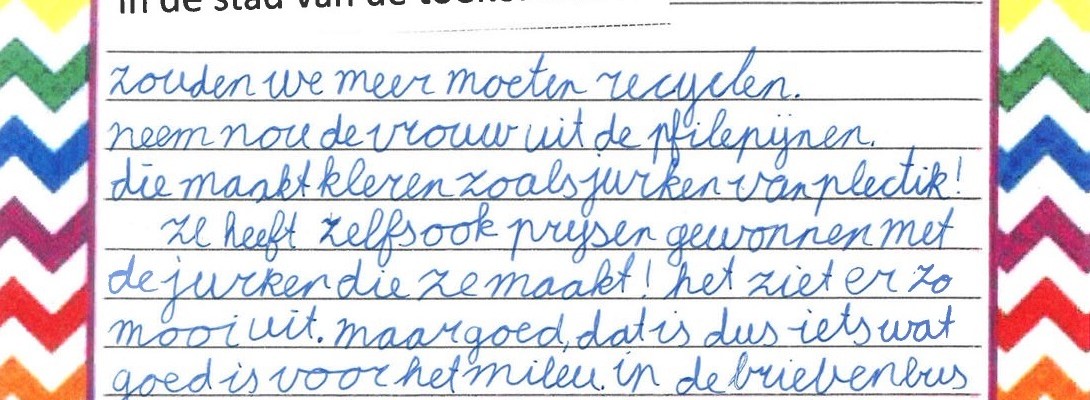 in de stad van de
zouden we meer moeten recyclen.
neem nou de vrouw uit de pfilepijnen.
die maakt kleren zoals jurken van plectik!
ze heeft zelfs ook prijsen gewonnen met
de jurken die ze maakt! het ziet er zo
mooi uit. maar goed, dat is dus iets wat
goed is voor het mileu. in de brievenbus